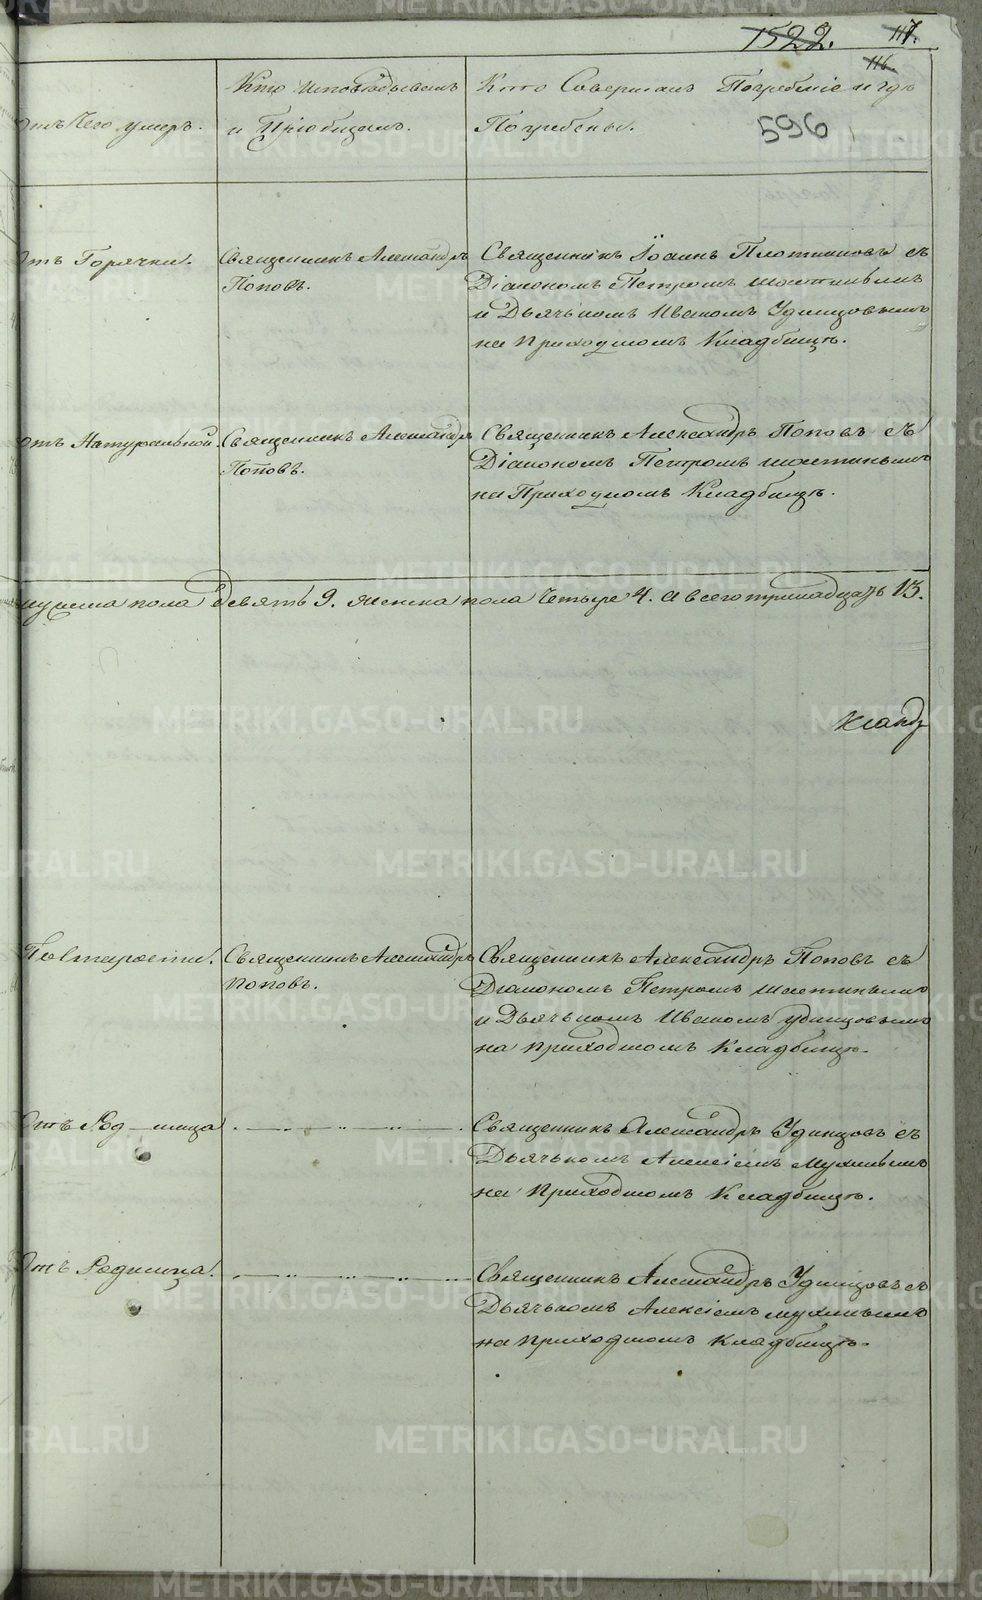 1522. 117.
116.
Отъ Чего умеръ.
Кто Исповѣдывалъ
и Пріобщалъ.
Кто Совершалъ Погребеніе и гдѣ
Погребены.
596
Отъ Горячки.
Священникъ Александръ
Поповъ.
Священникъ Іоаннъ Плотниковъ съ
Діакономъ Петромъ
и Дьячькомъ Иваномъ Удинцовымъ
на Приходномъ Кладбищѣ.
Отъ Натуральной.
Священникъ Александръ
Поповъ.
Священникъ Александръ Поповъ съ
Діакономъ Петромъ
на Приходномъ Кладбищѣ.
мужеска пола Девять 9. женска пола Четыре 4. А всего тринадцать 13.
Отъ Старости.
Священникъ Александръ
Поповъ.
Священникъ Александръ Поповъ съ
Діакономъ Петромъ
и Дьячькомъ Иваномъ Удинцовымъ
на приходномъ Кладбищѣ.
Отъ Родимца
Священникъ Александръ Удинцовъ съ
Дьячькомъ Алексіемъ
на Приходномъ Кладбищѣ.
Отъ Родимца.
Священникъ Александръ Удинцовъ съ
Дьячькомъ Алексіемъ
на приходномъ Кладбищѣ.
METRIKI.GASO-URAL.RU